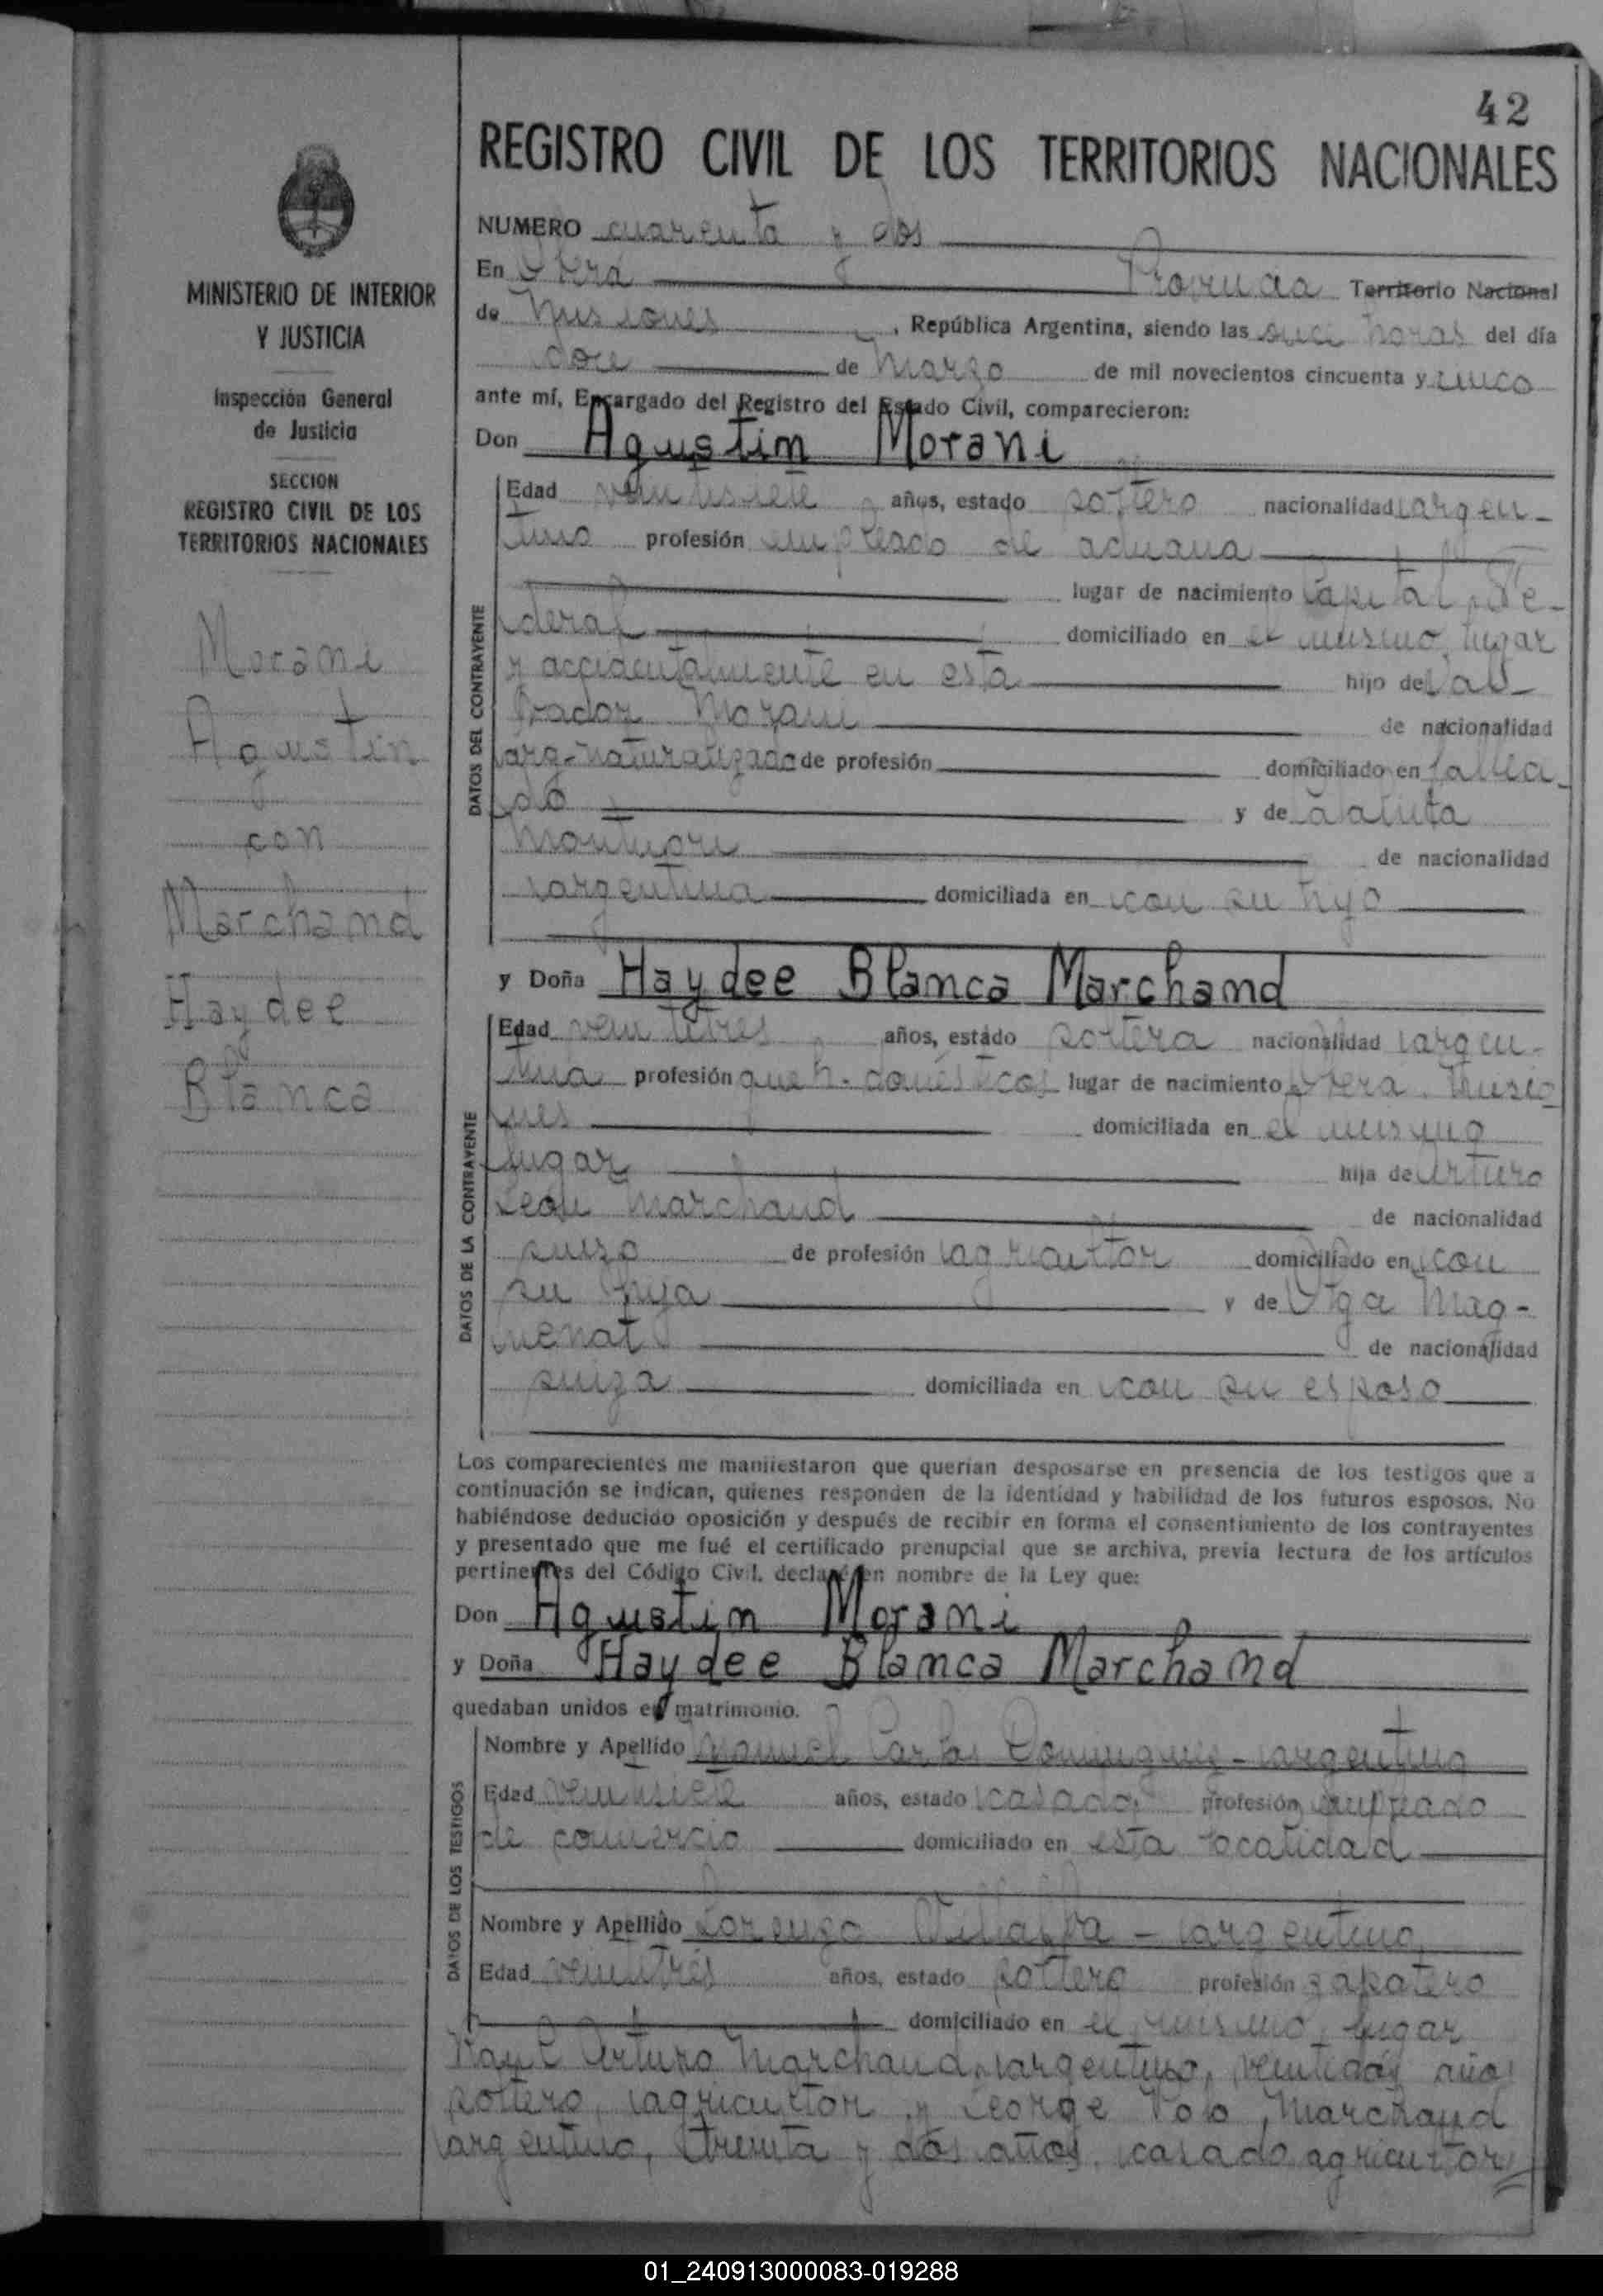 42
REGISTRO CIVIL DE LOS TERRITORIOS NACIONALES
NUMERO cuarenta y dos
En Oberá Provincia Territorio Nacional
de Misiones, República Argentina, siendo las once horas del día
doce de Marzo de mil novecientos cincuenta y cinco
ante mí, Encargado del Registro del Estado Civil, comparecieron:
Don Agustin Morani
Edad veintisiete años, estado soltero nacionalidad argen-
tino profesión empleado de aduana
lugar de nacimiento Capital Fe-
deral domiciliado en el mismo lugar
y accidentalmente en esta hijo de Sal-
vador Morani de nacionalidad
arg-naturalizado de profesión domiciliado en falleci-
do y de
de nacionalidad
argentina domiciliada en con su hijo
y Doña Haydee Blanca Marchand
Edad veintitres años, estado soltera nacionalidad argen-
tina profesión queh. domésticos lugar de nacimiento Oberá. Misio
nes domiciliada en el mismo
lugar hija de Arturo
León Marchand de nacionalidad
suizo de profesión agricultor domiciliado en con
su hija y de Olga Mag-
nenat de nacionalidad
suiza domiciliada en con su esposo
Los comparecientes me manifestaron que querían desposarse en presencia de los testigos que a
continuación se indican, quienes responden de la identidad y habilidad de los futuros esposos. No
habiéndose deducido oposición y después de recibir en forma el consentimiento de los contrayentes
y presentado que me fué el certificado prenupcial que se archiva, previa lectura de los artículos
pertinentes del Código Civil, declaré en nombre de la Ley que:
Don Agustin Morani
y Doña Haydee Blanca Marchand
quedaban unidos en matrimonio.
Nombre y Apellido Manuel Carlos Dominguez - argentino
Edad veintisiete años, estado casado, profesión empleado
de comercio domiciliado en esta localidad
Nombre y Apellido Lorenzo Villalba - argentino
Edad veintitrés años, estado soltero profesión zapatero
domiciliado en el mismo lugar
Raul Arturo Marchand, argentino, veintidós años
soltero, agricultor y George Polo Marchand
argentino, treinta y dos años, casado, agricultor
DATOS DEL CONTRAYENTE
DATOS DE LA CONTRAYENTE
DATOS DE LOS TESTIGOS
MINISTERIO DE INTERIOR
Y JUSTICIA
Inspección General
de Justicia
SECCION
REGISTRO CIVIL DE LOS
TERRITORIOS NACIONALES
Morani
Agustin
con
Marchand
Haydee
Blanca
01_240913000083-019288